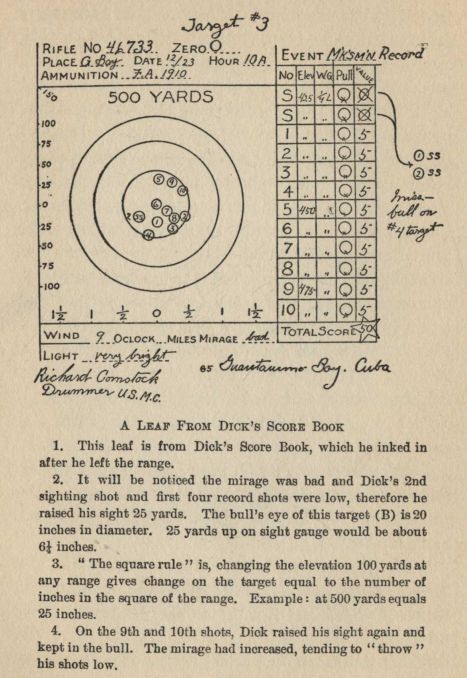 Target #3
RIFLE NO 46733. ZERO. O
PLACE G. Bay. DATE 12/23 HOUR 10A.
AMMUNITION F.A. 1910.
EVENT MKSM'N Record
No Elev WG Pull VALUE
500 YARDS
150
100
75
50
25
0
25
50
75
100
1½ 1 ½ 0 ½ 1 1½
S 425 ½ Q 5
S " " Q 5
1 " " Q 5
2 " " Q 5
3 " " Q 5
4 " " Q 5
5 450 " Q 5
6 " " Q 5
7 " " Q 5
8 " " Q 5
9 475 " Q 5
10 " " Q 5
TOTAL SCORE 50
① SS
② SS
bull on
#4 target
WIND 9 OCLOCK MILES MIRAGE bad
LIGHT very bright
Richard Comstock
Drummer U.S.M.C.
Guantanamo Bay. Cuba
A LEAF FROM DICK'S SCORE BOOK
1. This leaf is from Dick's Score Book, which he inked in
after he left the range.
2. It will be noticed the mirage was bad and Dick's 2nd
sighting shot and first four record shots were low, therefore he
raised his sight 25 yards. The bull's eye of this target (B) is 20
inches in diameter. 25 yards up on sight gauge would be about
6¼ inches.
3. "The square rule" is, changing the elevation 100 yards at
any range gives change on the target equal to the number of
inches in the square of the range. Example: at 500 yards equals
25 inches.
4. On the 9th and 10th shots, Dick raised his sight again and
kept in the bull. The mirage had increased, tending to "throw"
his shots low.